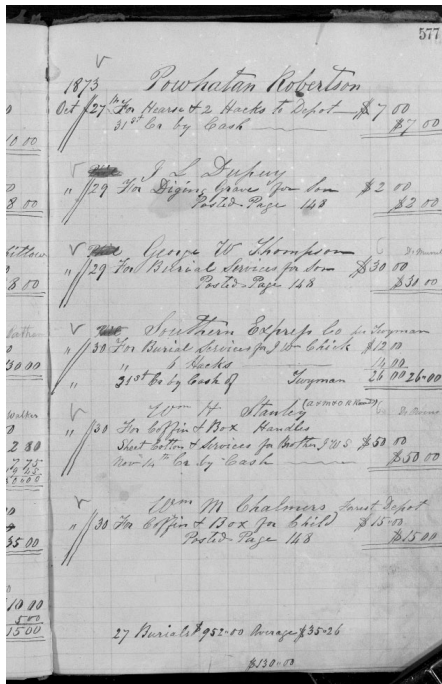 577
1873 Powhatan Robertson
Oct 27th For Hearse & 2 Hacks to Depot $7 00
31st Cr by Cash $7 00
J L Dupuy
" 29 For Diging Grave for Son $2 00
Posted Page 148 $2 00
George W Thompson
" 29 For Burial Services for Son $30 00
Posted Page 148 $30 00
Southern Express Co per Twyman
" 30 For Burial Services for J Wm Chick $12 00
" " 6 Hacks 14 00
" 31st Cr by Cash of Twyman 26 00 26-00
Wm H Stanley
" 30 For Coffin & Box Handles
Sheet Cotton & Services for Brother J W S $50 00
Nov 4th Cr by Cash $50 00
Wm M Chalmers Forest Depot
" 30 For Coffin & Box for Child $15-00
Posted Page 148 $15 00
27 Burials $952-00 Average $35-26
$130-00